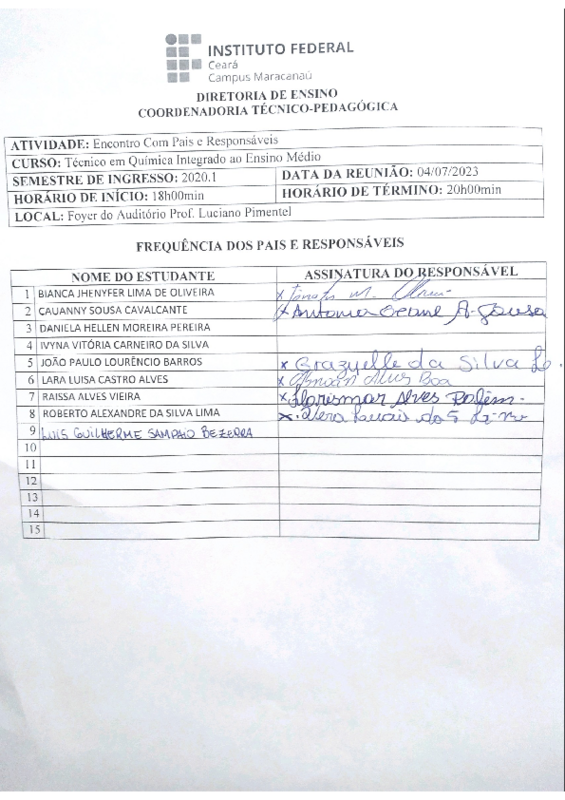 INSTITUTO FEDERAL
Ceará
Campus Maracanaú
DIRETORIA DE ENSINO
COORDENADORIA TÉCNICO-PEDAGÓGICA
ATIVIDADE: Encontro Com Pais e Responsáveis
CURSO: Técnico em Química Integrado ao Ensino Médio
SEMESTRE DE INGRESSO: 2020.1 DATA DA REUNIÃO: 04/07/2023
HORÁRIO DE INÍCIO: 18h00min HORÁRIO DE TÉRMINO: 20h00min
LOCAL: Foyer do Auditório Prof. Luciano Pimentel
FREQUÊNCIA DOS PAIS E RESPONSÁVEIS
NOME DO ESTUDANTE ASSINATURA DO RESPONSÁVEL
1 BIANCA JHENYFER LIMA DE OLIVEIRA x M.
2 CAUANNY SOUSA CAVALCANTE x Antonia A. Sousa
3 DANIELA HELLEN MOREIRA PEREIRA
4 IVYNA VITÓRIA CARNEIRO DA SILVA
5 JOÃO PAULO LOURÊNCIO BARROS x Grazyelle da Silva Lo.
6 LARA LUISA CASTRO ALVES x Alves
7 RAISSA ALVES VIEIRA x Florismar Alves Rolim.
8 ROBERTO ALEXANDRE DA SILVA LIMA x
9 LUÍS GUILHERME SAMPAIO BEZERRA
10
11
12
13
14
15